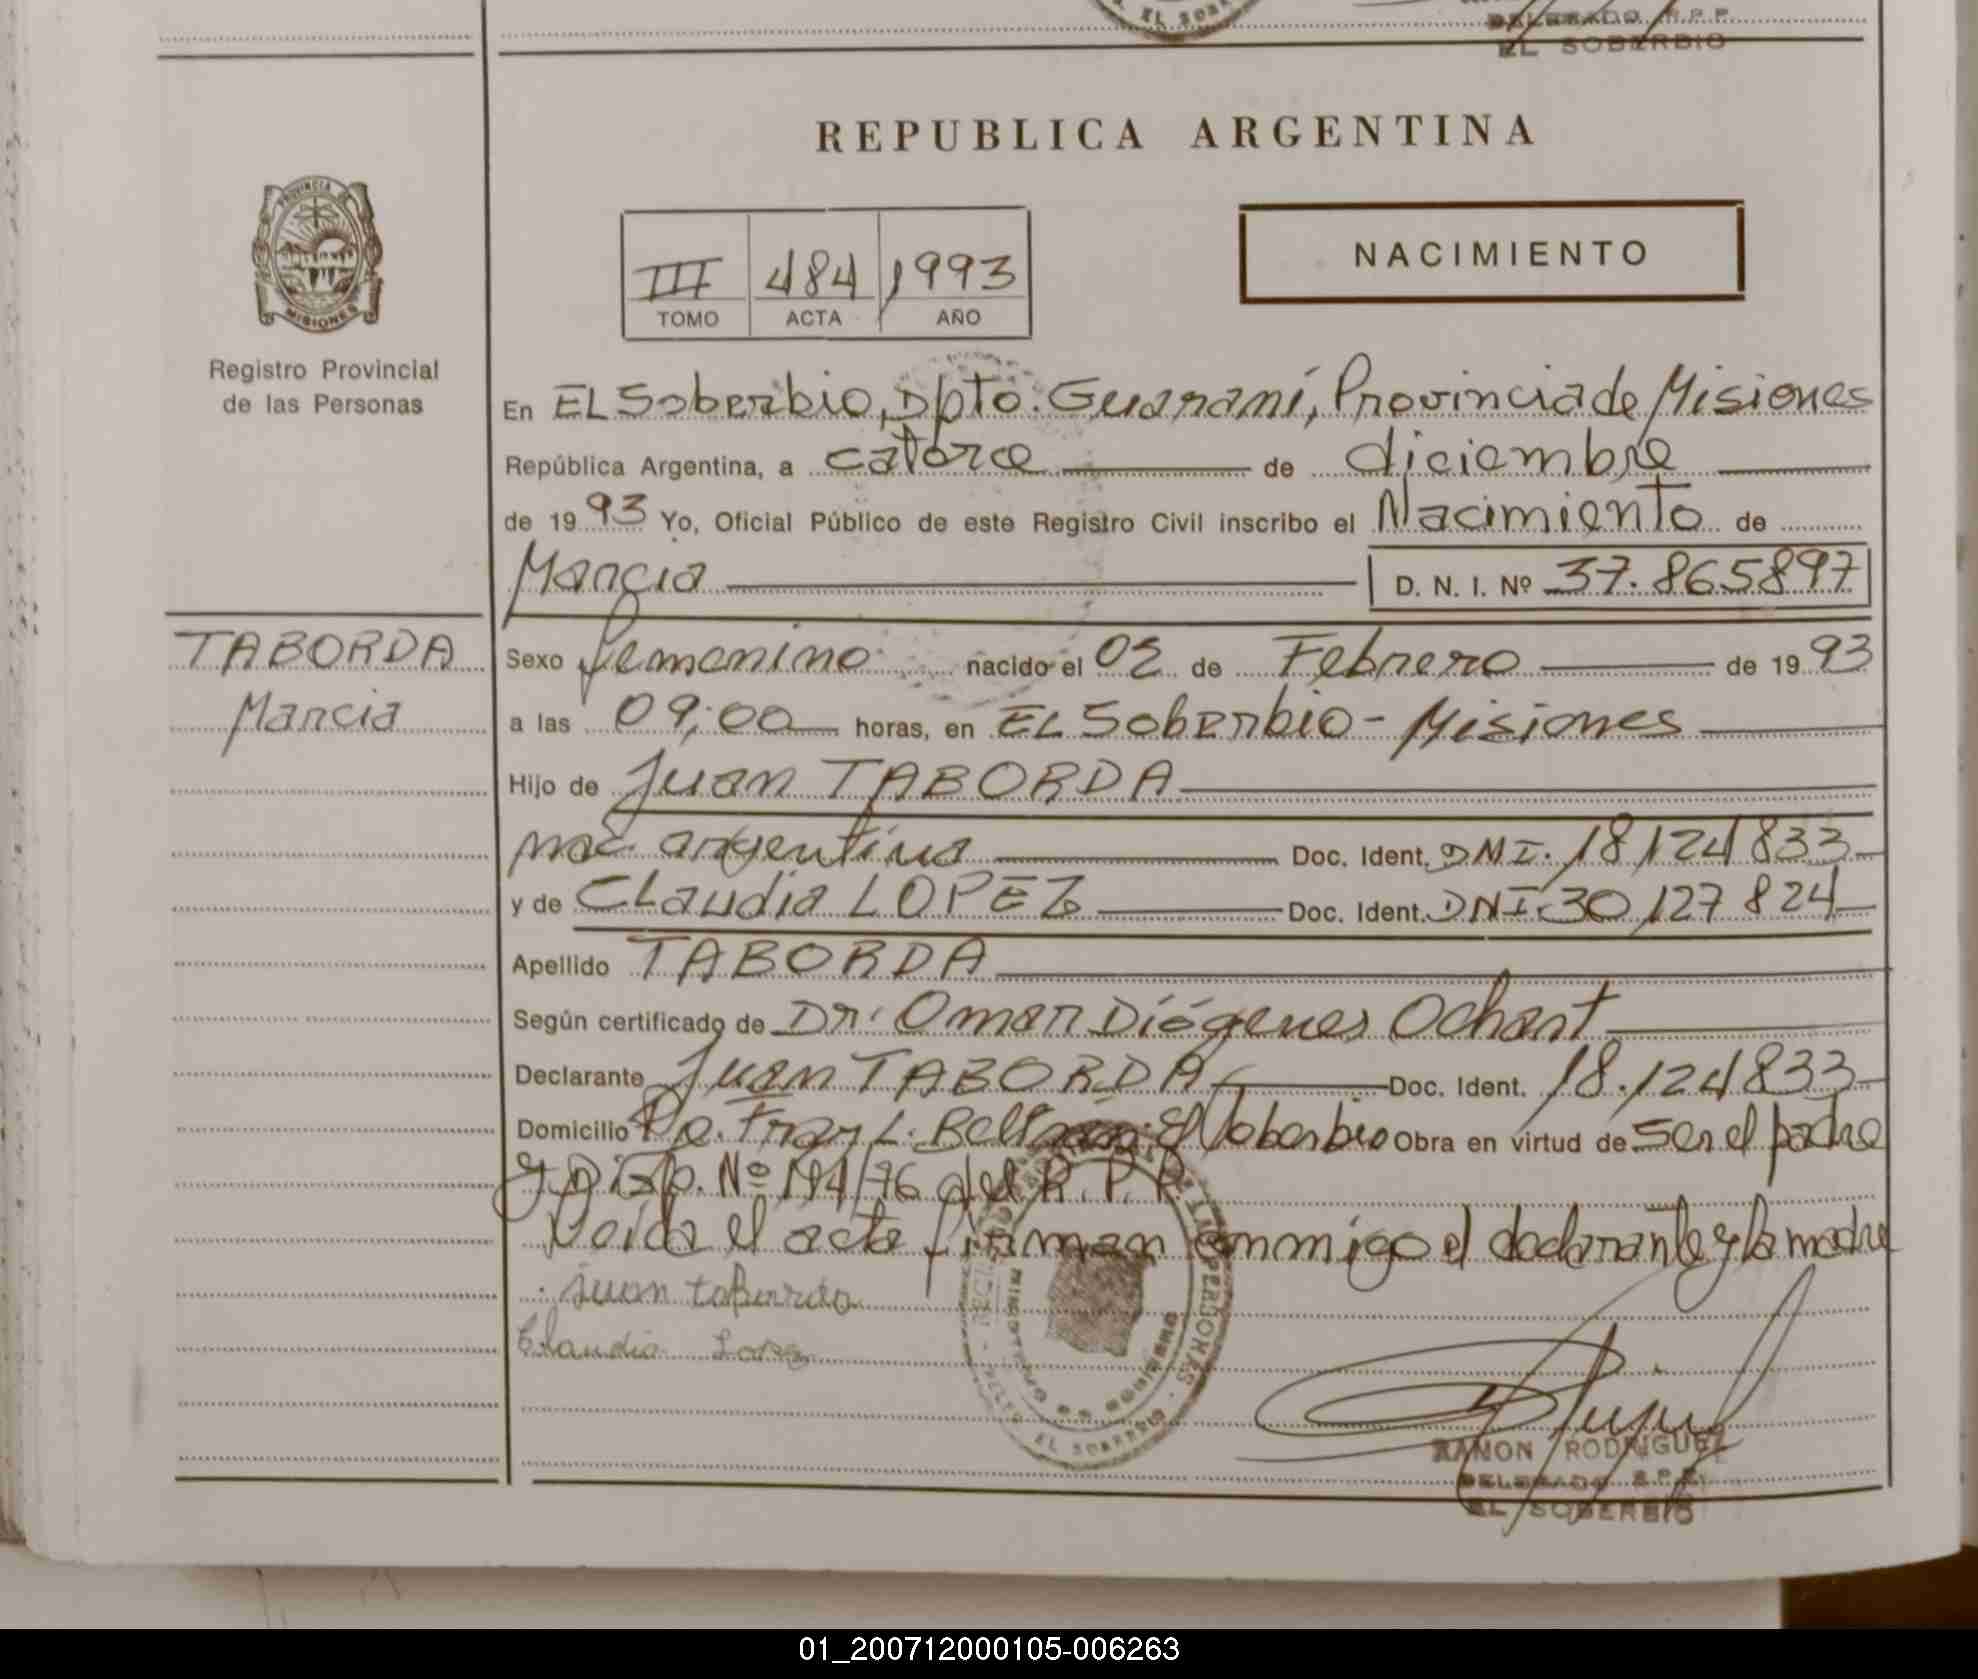 DELEGADO R.P.P.
EL SOBERBIO
REPUBLICA ARGENTINA
PROVINCIA DE
MISIONES
Registro Provincial
de las Personas
III 484 1993
TOMO ACTA AÑO
NACIMIENTO
En EL Soberbio, Dpto. Guaraní, Provincia de Misiones
República Argentina, a catorce de diciembre
de 19 93 Yo, Oficial Público de este Registro Civil inscribo el Nacimiento de
Marcia D. N. I. Nº 37.865897
TABORDA
Marcia
Sexo femenino nacido el 02 de Febrero de 19 93
a las 09;00 horas, en EL Soberbio - Misiones
Hijo de Juan TABORDA
nac. argentina Doc. Ident. DNI. 18,124833
y de Claudia LOPEZ Doc. Ident. DNI.30,127824
Apellido TABORDA
Según certificado de Dr. Omar Diógenes Ochart
Declarante Juan TABORDA Doc. Ident. 18.124833
Domicilio Fray L. Beltrán El Soberbio Obra en virtud de ser el padre
y Disp. Nº 194/76 del R.P.P.
Leida el acta firman conmigo el declarante y la madre
juan taborda
Claudia Lopez
MINISTERIO DE GOBIERNO
EL SOBERBIO
RAMON RODRIGUEZ
DELEGADO R.P.P.
EL SOBERBIO
01_200712000105-006263